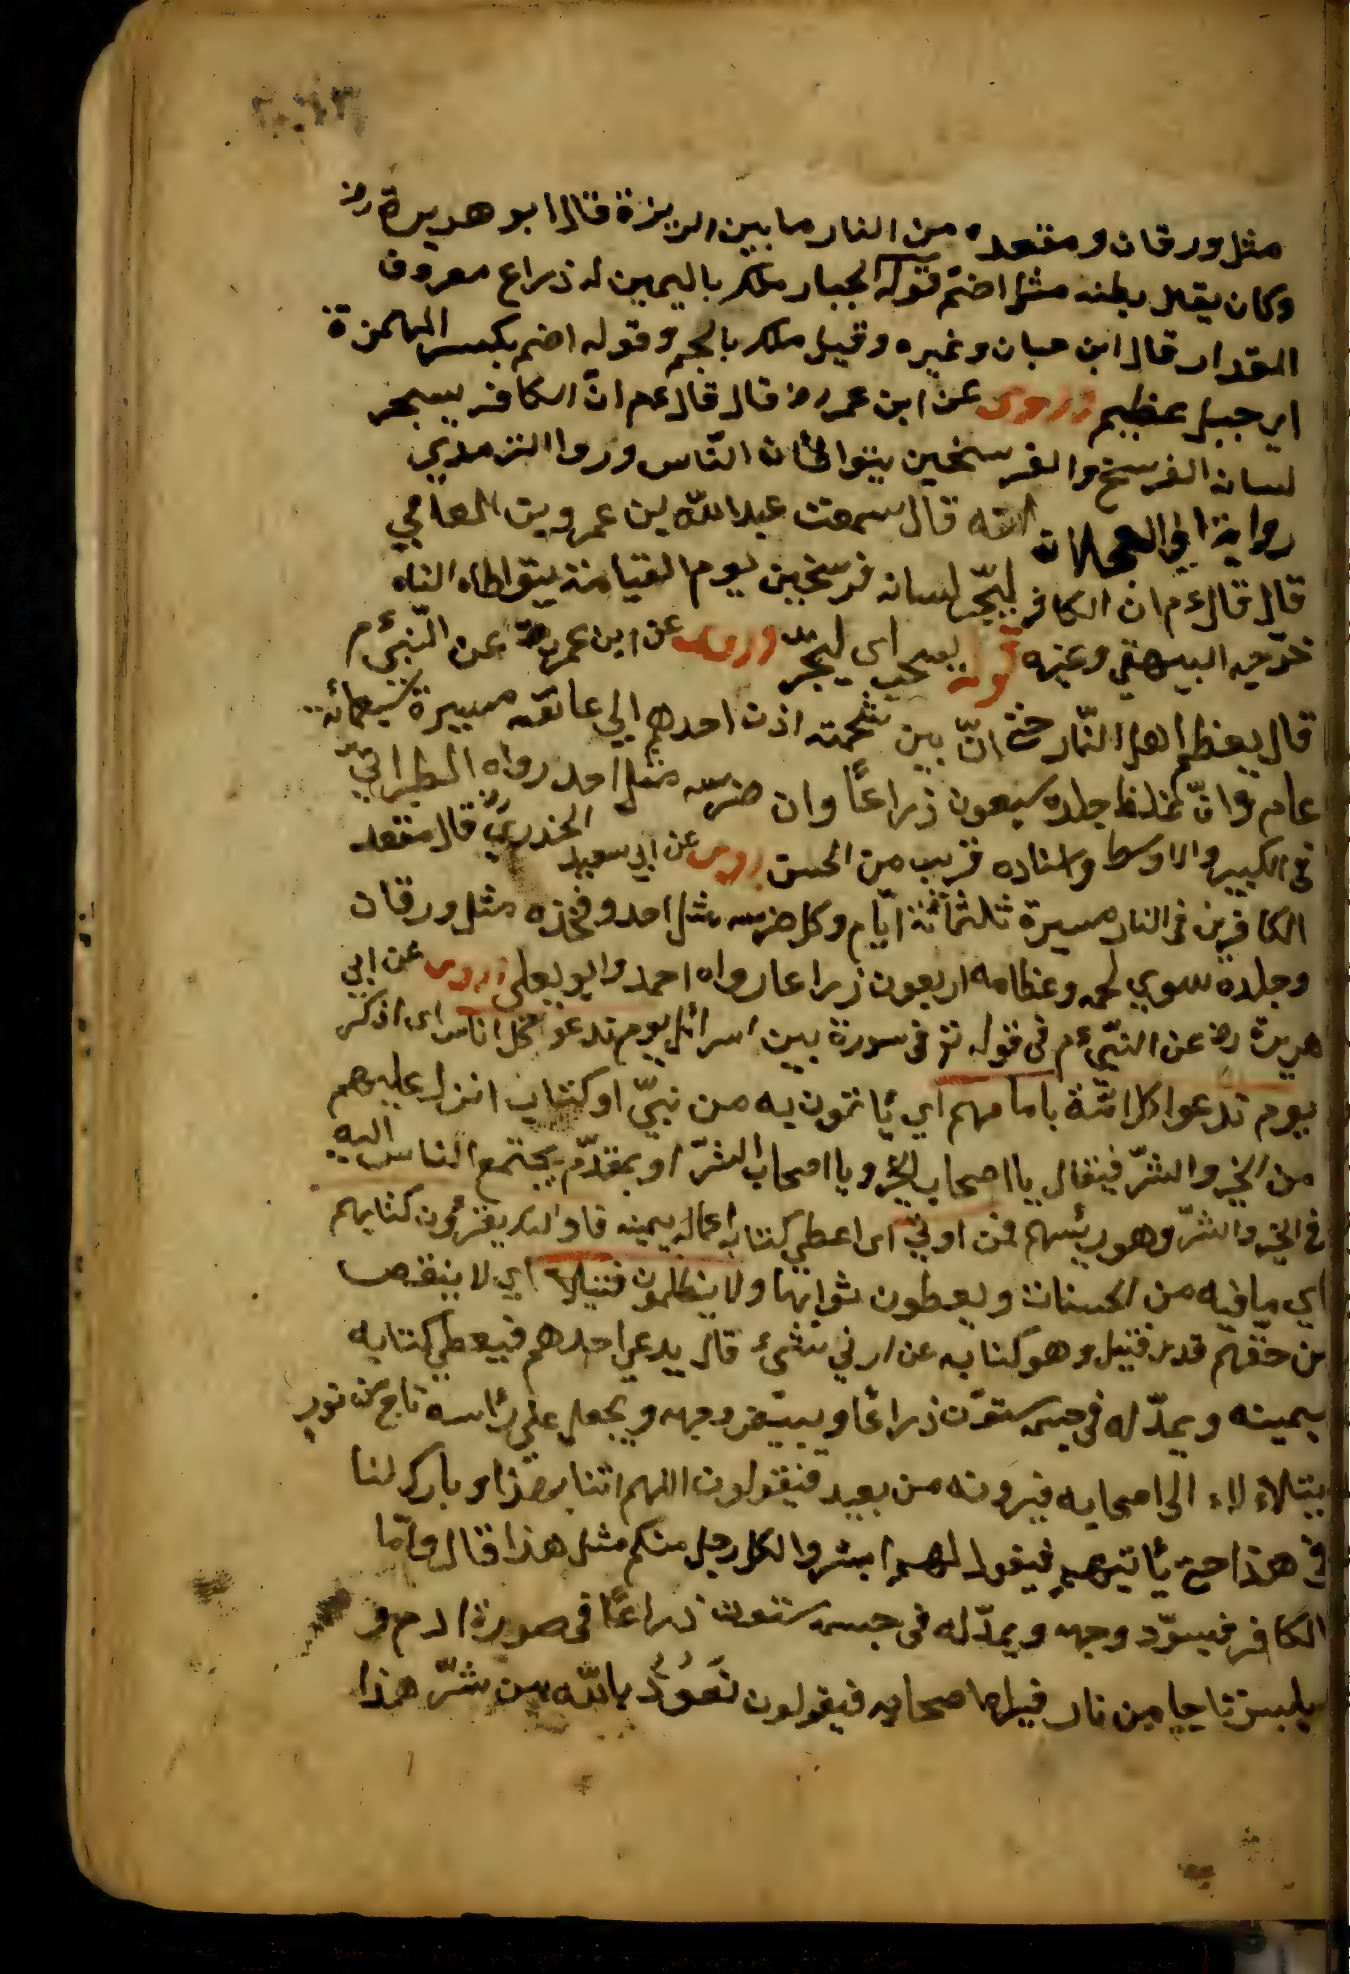 مثل ورقان ومقعده من النار ما بين الربزة قال ابو هريرة رض
وكان يقال بطنه مثل اضم قوله الجبار ملك باليمين له ذراع معروف
المقدار قال ابن حبان وغيره وقيل ملك بالعجم وقوله اضم بكسر الهمزة
اي جبل عظيم وروى عن ابن عمر رض قال قال عم انّ الكافر يسحر
لسانه الفرسخ والفرسخين يتوالئان النّاس وروا الترمذي
رواية ابي العجلان انه قال سمعت عبد اللّه بن عمرو بن العاص
قال قال عم ان الكافر ليجّر لسانه فرسخين يوم القيامة يتواطاه الناس
خرّجه البيهقي وغيره قوله يسحب اى ليجر وروى عن ابن عمر رض عن النّبي عم
قال يعظم اهل النّار حتى انّ بين شحمة اذن احدهم الي عاتقه مسيرة سبعمائة
عام وانّ غلظ جلده سبعون ذراعًا وان ضرسه مثل احد رواه الطبراني
فى الكبير والاوسط واسناده قريب من الحسن روى عن ابي سعيد الخدريّ رض قال مقعد
الكافرين فى النار مسيرة ثلثمائة ايّام وكل ضرسه مثل احد وفخذه مثل ورقان
وجلده سوي لحمه وعظامه اربعون ذراعا رواه احمد وابو يعلى وروى عن ابي
هريرة رض عن النّبي عم فى قوله تع فى سورة بين اسرائل يوم ندعو كل اناس اى اذكر
يوم ندعوا كل امّة بامامهم اي يأتمون به من نبيّ او كتاب انزل عليهم
من الخير والشرّ فيقال يا اصحاب الخير ويا اصحاب الشرّ او بمقدّم يجتمع الناس اليه
فى الخير والشرّ وهو رئيسهم فمن اوتي اى اعطي كتاب اعماله بيمينه فاولئك يقرؤن كتابهم
اي ما فيه من الحسنات ويعطون ثوابها ولا يظلمون فتيلا اي لا ينقص
من حقّهم قدر فتيل وهو كناية عن ادني شيء قال يدعي احدهم فيعطي كتابه
بيمينه ويمدّ له فى جسمه ستّون ذراعًا ويبيّض وجهه ويجعل علي رأسه تاج من نور
يتلاءلاء الى اصحابه فيرونه من بعيد فيقولون اللهم ائتنا بهذا وبارك لنا
فى هذا حتى يأتيهم فيقول لهم ابشروا لكل رجل منكم مثل هذا قال وامّا
الكافر فيسوّد وجهه ويمدّ له فى جسمه ستون ذراعًا فى صورة ادم و
يلبس تاجا من نار فيراه اصحابه فيقولون نَعُوُذ باللّه من شرّ هذا